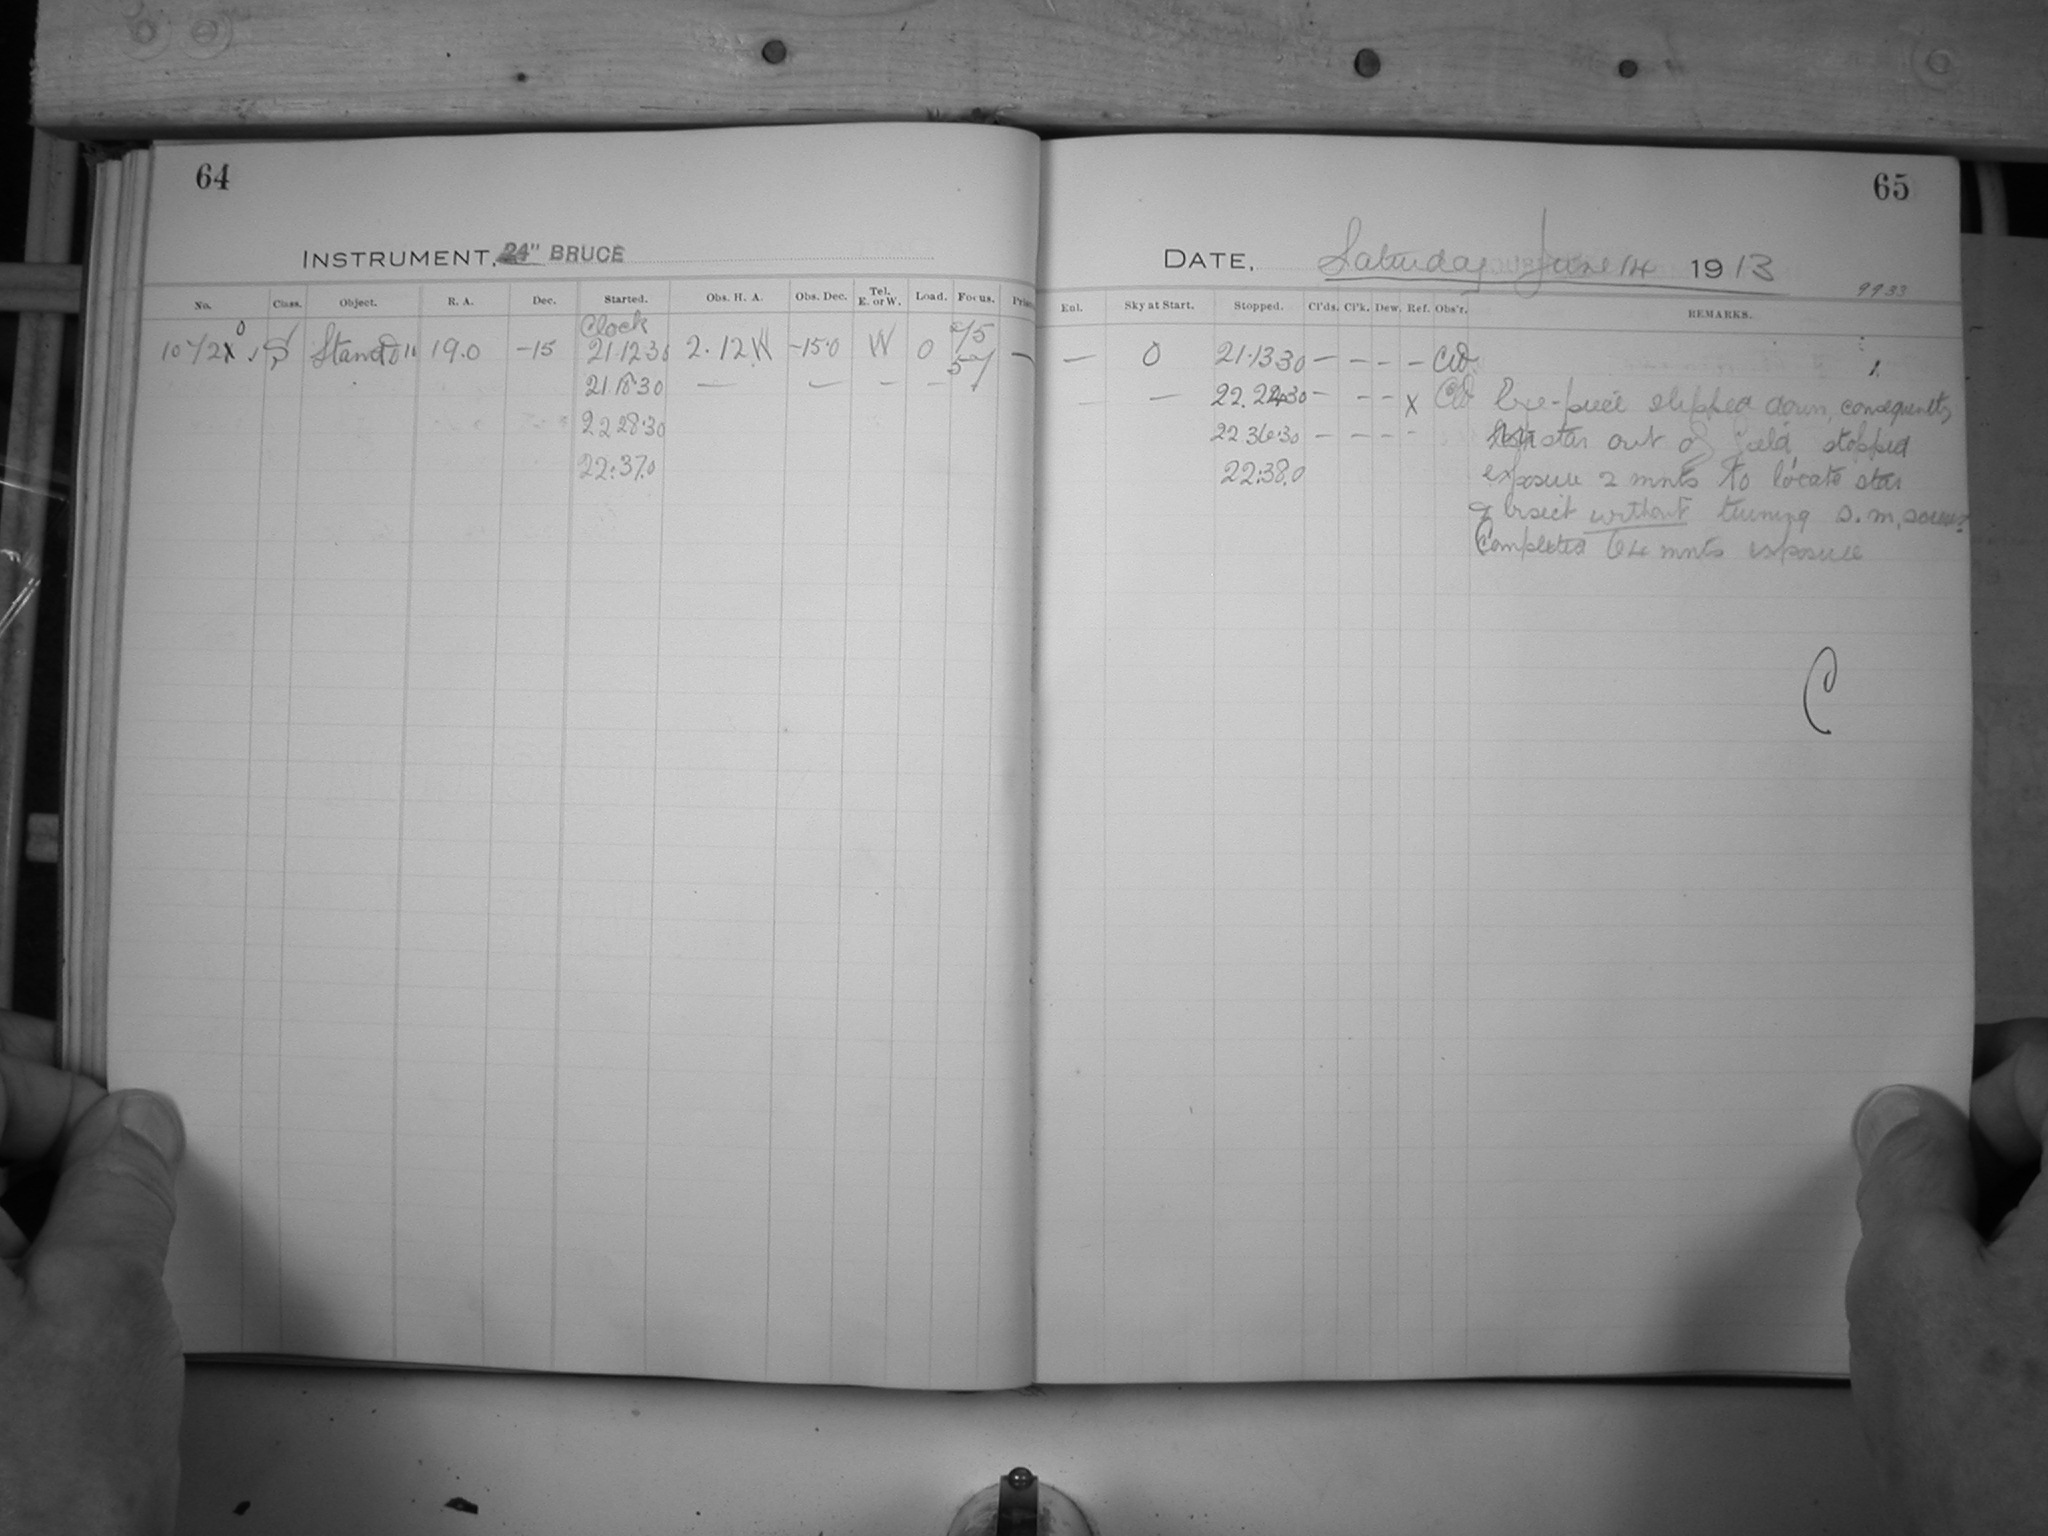 64
INSTRUMENT, 24" BRUCE
No. Class. Object. R. A. Dec. Started. Obs. H. A. Obs. Dec. Tel. E. or W. Load. Focus.
Clock
S 19.0 -15 21.12.30 2.12 W -15.0 W 0 — 
21.18.30 — — — —
22 28.30
22.37.0
65
DATE, Saturday June 14 1913
9933
Enl. Sky at Start. Stopped. Cl'ds. Cl'k. Dew. Ref. Obs'r. REMARKS.
— 0 21.13 30 — — — —
— 22.24.30 — — — X Eye-piece slipped down, consequently
22 36.30 — — — — star out of field, stopped
22.38.0 exposure 2 mnts to locate star
& bisect without turning s.m. screws.
Completed 64 mnts exposure
C